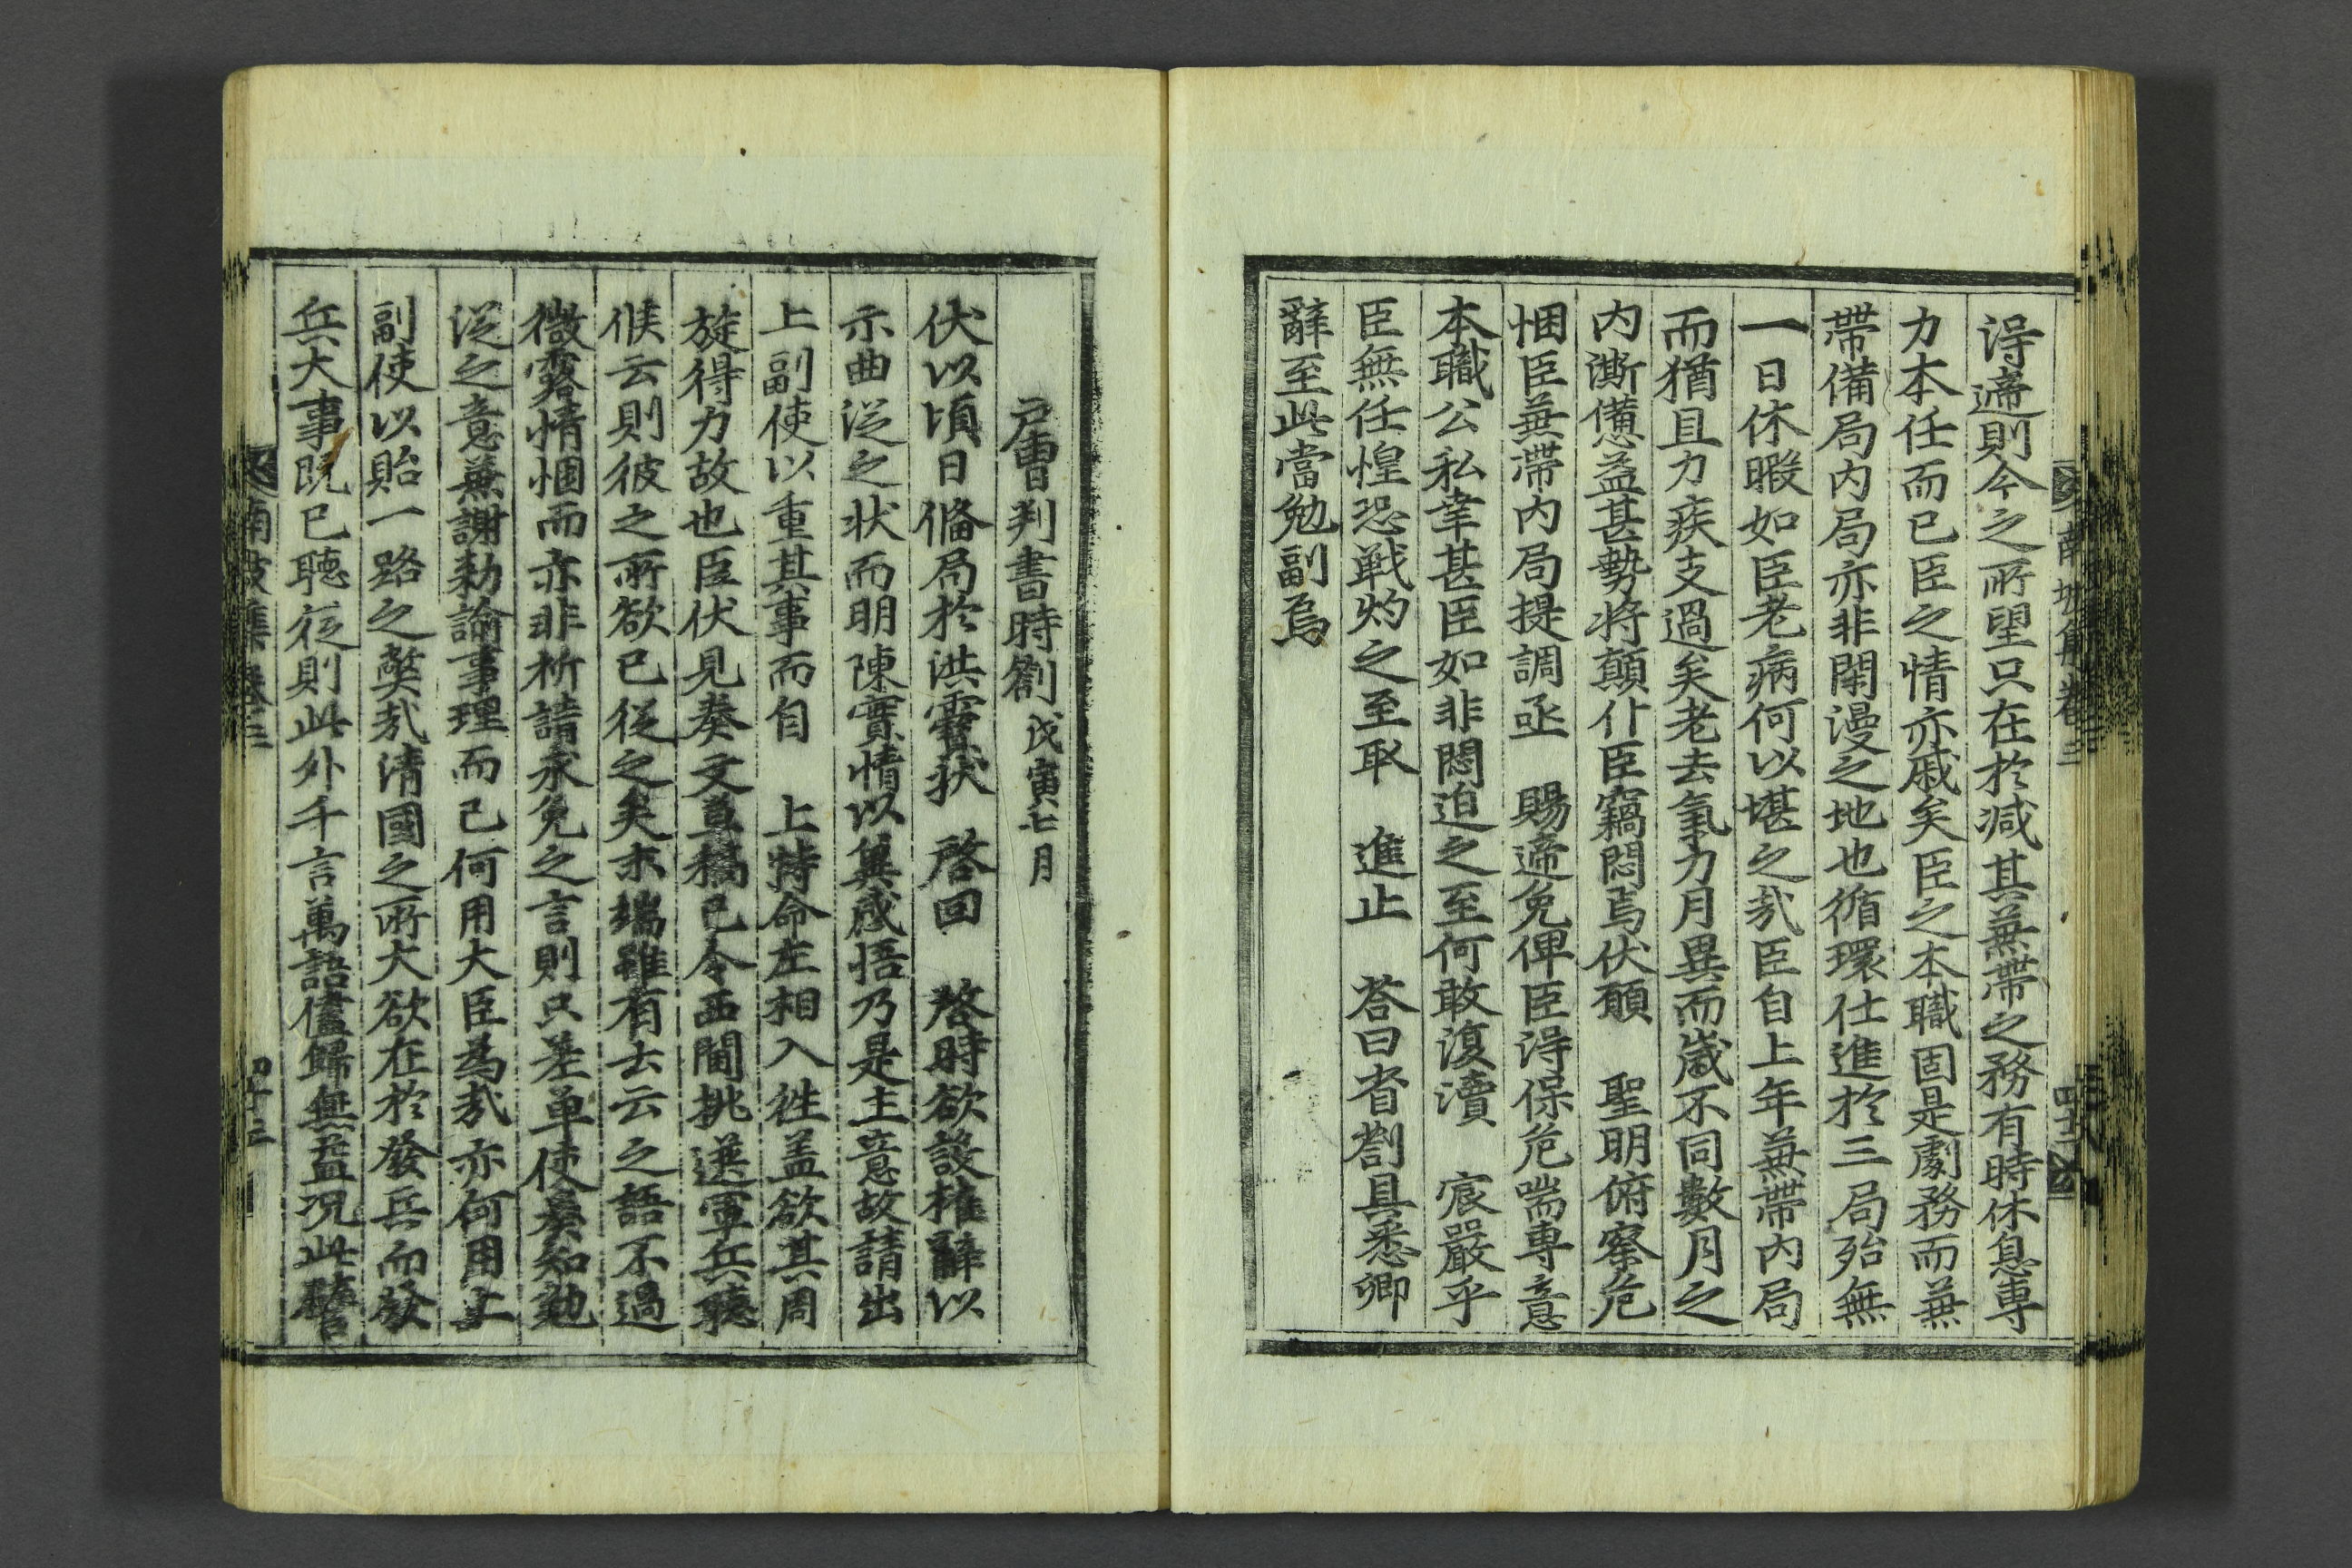 得遞則今之所望只在於減其兼帶之務有時休息專
力本任而已臣之情亦戚矣臣之本職固是劇務而兼
帶備局內局亦非閑漫之地也循環仕進於三局殆無
一日休暇如臣老病何以堪之哉臣自上年兼帶內局
而猶且力疾支過矣老去氣力月異而歲不同數月之
內澌憊益甚勢將顚仆臣竊悶焉伏願 聖明俯察危
悃臣兼帶內局提調亟 賜遞免俾臣得保危喘專意
本職公私幸甚臣如非悶迫之至何敢復瀆 宸嚴乎
臣無任惶恐戰灼之至取 進止 答曰省劄具悉卿
辭至此當勉副焉
戶曹判書時劄 戊寅七月
伏以頃日俻局於洪霙狀 啓回 啓時欲設權辭以
示曲從之狀而明陳實情以冀感悟乃是主意故請出
上副使以重其事而自 上特命左相入徃盖欲其周
旋得力故也臣伏見奏文草稿已令西閫挑選軍兵聽
候云則彼之所欲已從之矣末端雖有云云之語不過
微露情悃而亦非祈請永免之言則只差单使奏知勉
從之意兼謝勑諭事理而已何用大臣爲哉亦何用上
副使以貽一路之獘哉清國之所大欲在於發兵而發
兵大事既已聽從則此外千言萬語儘歸無益况此
南坡集卷三